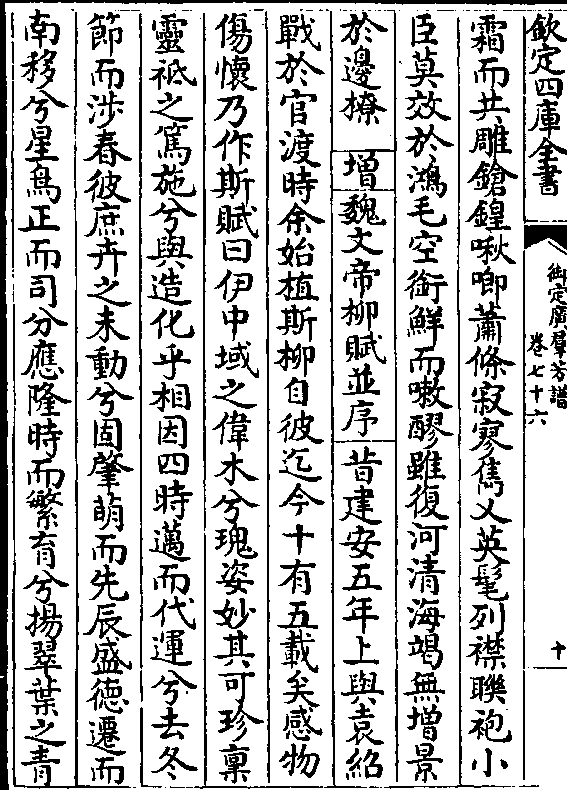 欽定四庫全書
御定廣羣芳譜
卷七十六
十
霜而共雕鎗鍠啾唧蕭條寂寥雋乂英髦列襟聯袍小
臣莫效於鴻毛空銜鮮而嗽醪雖復河清海竭無增景
於邊撩 增魏文帝柳賦並序 昔建安五年上與袁紹
戰於官渡時余始植斯柳自彼迄今十有五載矣感物
傷懷乃作斯賦曰伊中域之偉木兮瑰姿妙其可珍稟
靈祇之篤施兮與造化乎相因四時邁而代運兮去冬
節而涉春彼庶卉之未動兮固肇萌而先辰盛德遷而
南移兮星鳥正而司分應隆時而繁育兮揚翠葉之青